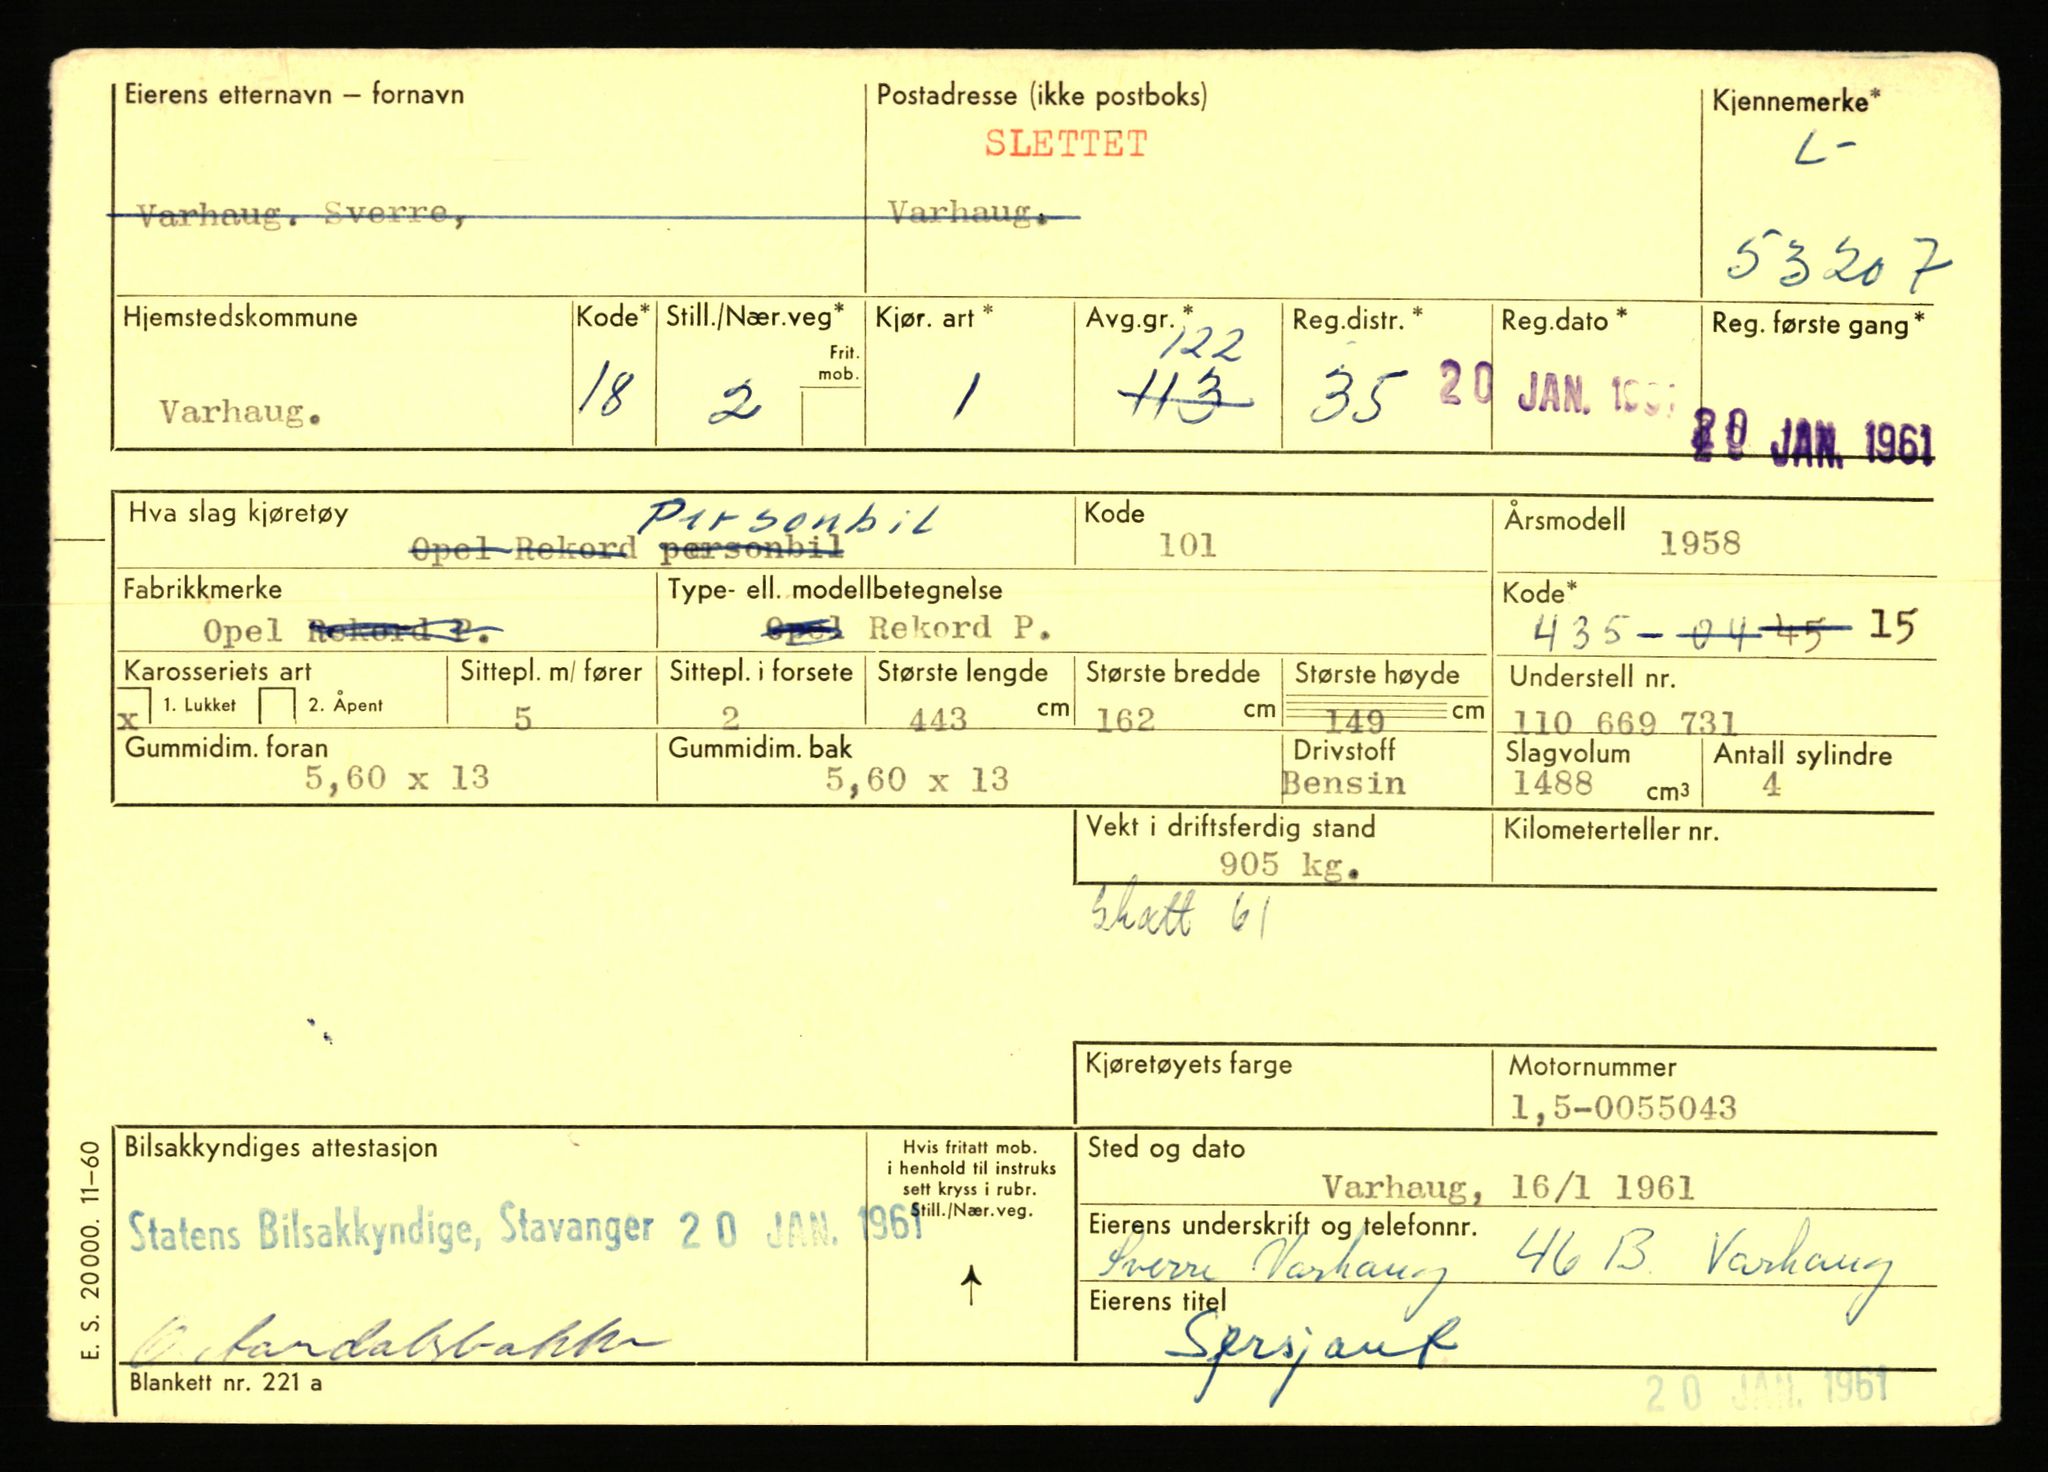 Eierens etternavn – fornavn
Postadresse (ikke postboks)
Kjennemerke*
SLETTET
L-
Varhaug. Sverre,
Varhaug.
53207
Hjemstedskommune
Kode*
Still./Nær.veg*
Kjør. art *
Avg.gr. *
Reg.distr. *
Reg.dato *
Reg. første gang*
Frit.
mob.
122
Varhaug.
18
2
1
113
35
20 JAN. 1961
20 JAN. 1961
Hva slag kjøretøy
Personbil
Opel Rekord personbil
Kode
101
Årsmodell
1958
Fabrikkmerke
Opel Rekord P.
Type- ell. modellbetegnelse
Opel Rekord P.
Kode*
435-04 45 15
Karosseriets art
x 1. Lukket
2. Åpent
Sittepl. m/ fører
5
Sittepl. i forsete
2
Største lengde
443 cm
Største bredde
162 cm
Største høyde
149 cm
Understell nr.
110 669 731
Gummidim. foran
5,60 x 13
Gummidim. bak
5,60 x 13
Drivstoff
Bensin
Slagvolum
1488 cm³
Antall sylindre
4
Vekt i driftsferdig stand
905 kg.
Kilometerteller nr.
Skatt 61
Kjøretøyets farge
Motornummer
1,5-0055043
Bilsakkyndiges attestasjon
Statens Bilsakkyndige, Stavanger 20 JAN. 1961
Hvis fritatt mob.
i henhold til instruks
sett kryss i rubr.
Still./Nær.veg.
Sted og dato
Varhaug, 16/1 1961
Eierens underskrift og telefonnr.
Sverre Varhaug 46 B. Varhaug
Eierens titel
Sersjant
E. S. 20000. 11-60
Blankett nr. 221 a
20 JAN. 1961